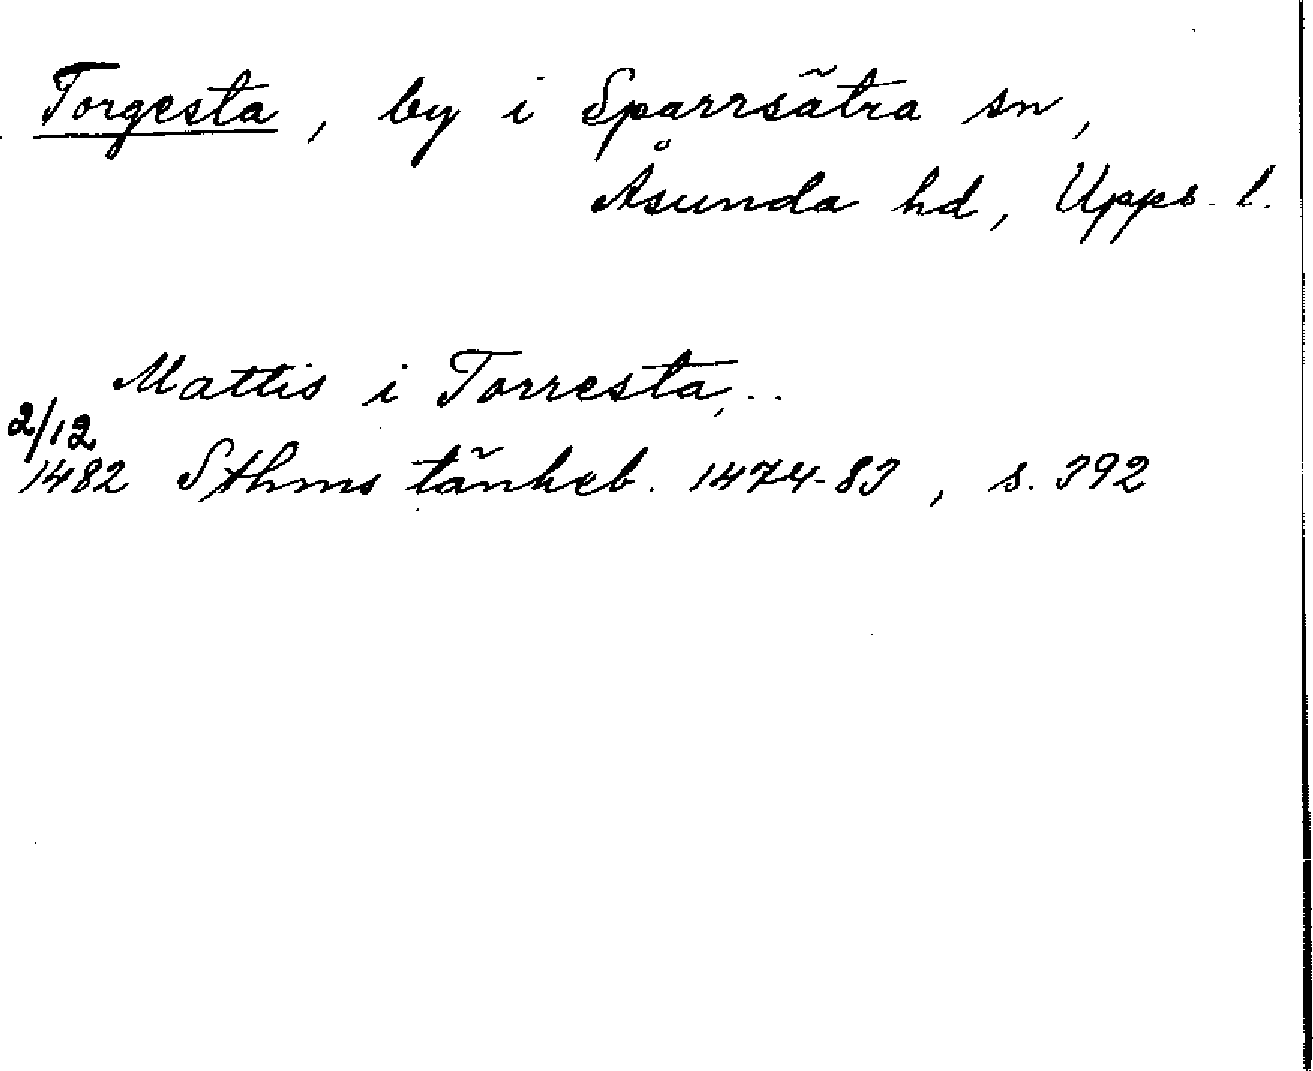 Torgesta, by i Sparrsätra sn,
Åsunda hd, Upps. l.
Mattis i Torresta, ..
2/12
1482 Sthms tänkeb. 1474-83, s. 392